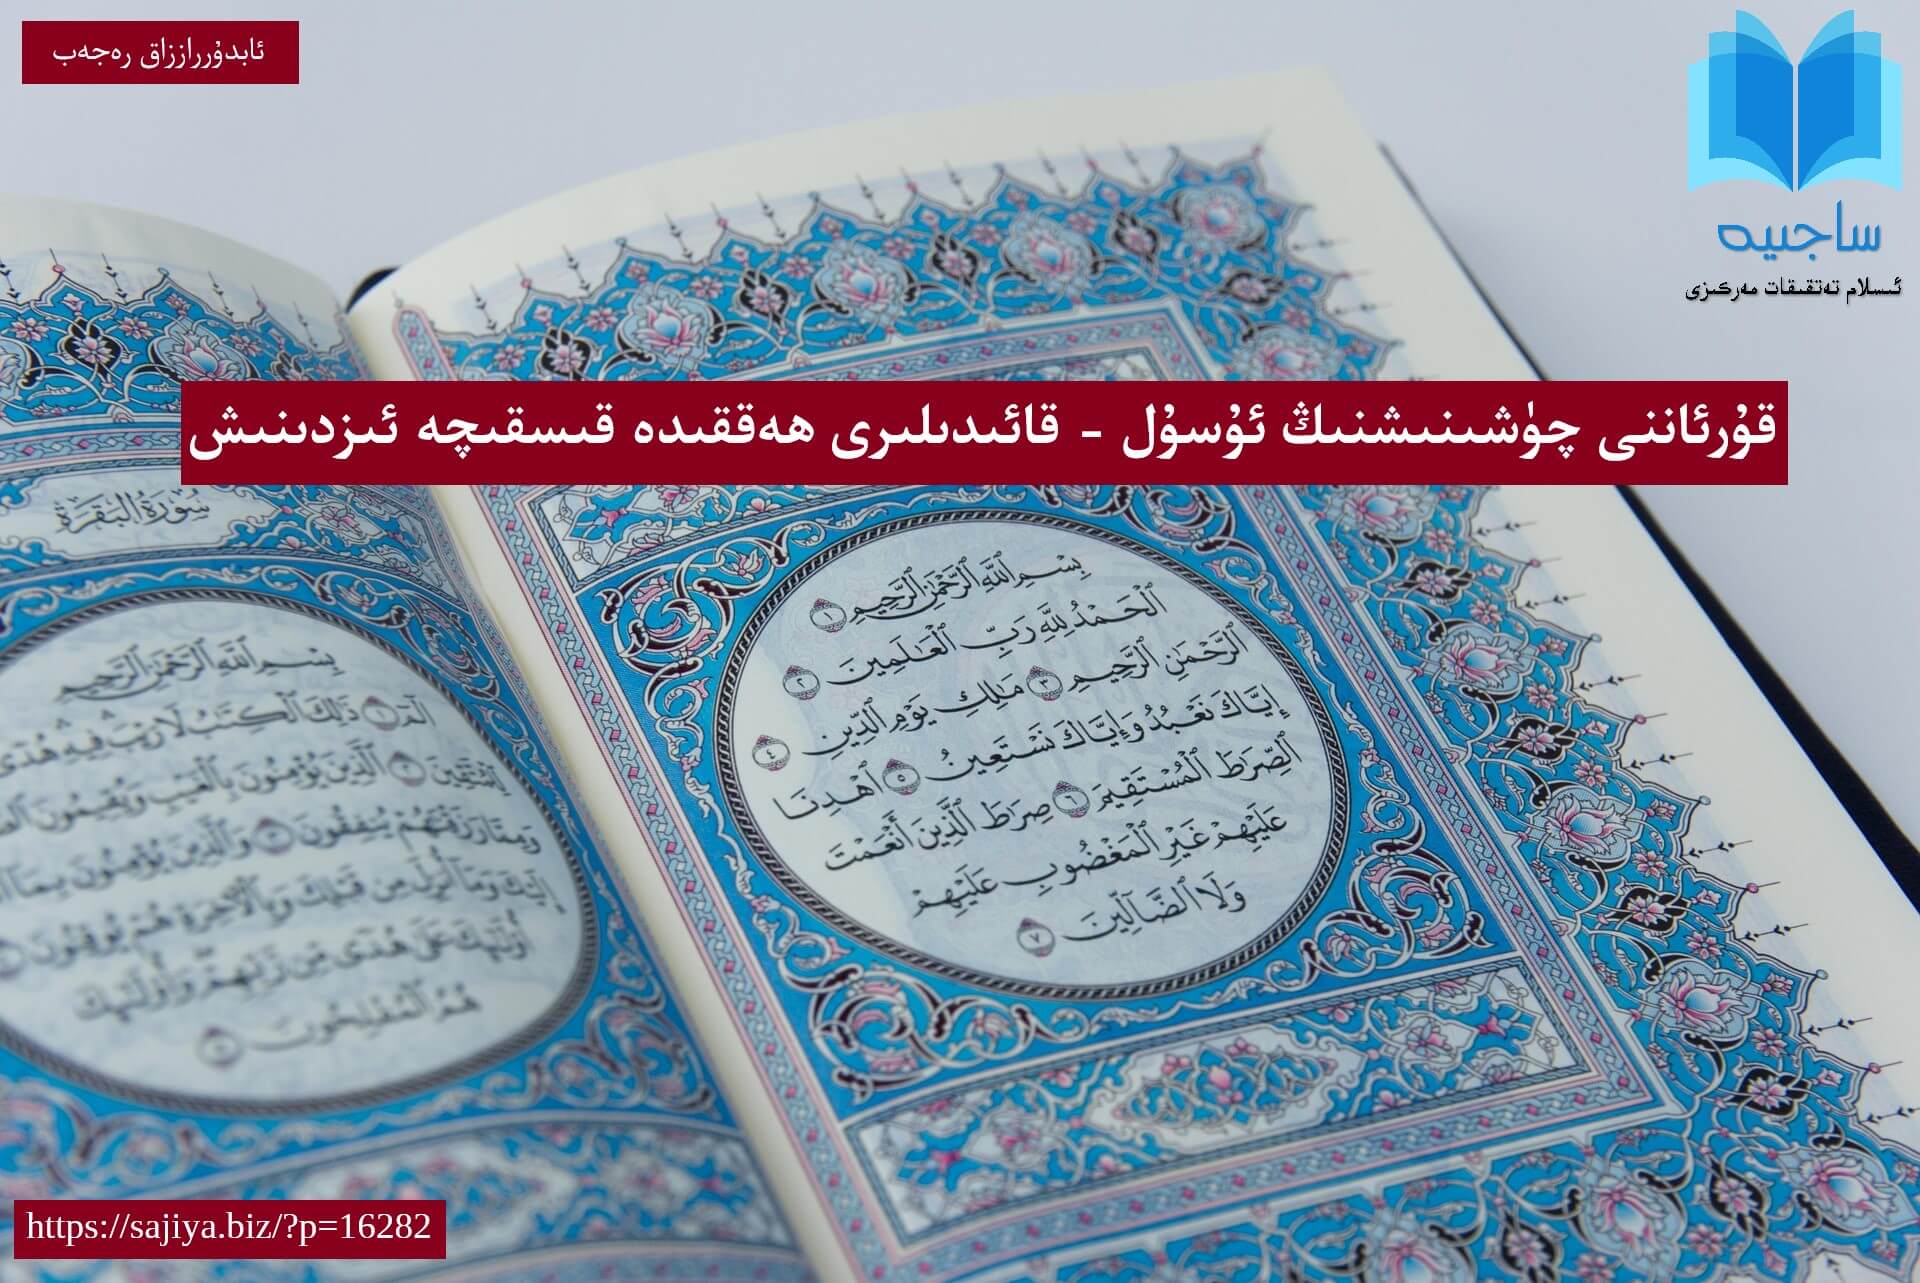 ئابدۇررازzاق رەجەب
ساجىيە
ئىسلام تەتقىقات مەركىزى
قۇرئاننى چۈشىنىشنىڭ ئۇسۇل - قائىدىلىرى ھەققىدە قىسقىچە ئىزدىنىش
بِسْمِ ٱللَّهِ ٱلرَّحْمَٰنِ ٱلرَّحِيمِ ١
ٱلْحَمْدُ لِلَّهِ رَبِّ ٱلْعَٰلَمِينَ ٢
ٱلرَّحْمَٰنِ ٱلرَّحِيمِ ٣ مَٰلِكِ يَوْمِ ٱلدِّينِ ٤
إِيَّاكَ نَعْبُدُ وَإِيَّاكَ نَسْتَعِينُ ٥ ٱهْدِنَا
ٱلصِّرَٰطَ ٱلْمُسْتَقِيمَ ٦ صِرَٰطَ ٱلَّذِينَ أَنْعَمْتَ
عَلَيْهِمْ غَيْرِ ٱلْمَغْضُوبِ عَلَيْهِمْ
وَلَا ٱلضَّآلِّينَ ٧
سُورَةُ الْبَقَرَةِ
بِسْمِ ٱللَّهِ ٱلرَّحْمَٰنِ ٱلرَّحِيمِ
الٓمٓ ١ ذَٰلِكَ ٱلْكِتَٰبُ لَا رَيْبَ فِيهِ هُدًى
لِّلْمُتَّقِينَ ٢ ٱلَّذِينَ يُؤْمِنُونَ بِٱلْغَيْبِ وَيُقِيمُونَ
وَمِمَّا رَزَقْنَٰهُمْ يُنفِقُونَ ٣ وَٱلَّذِينَ يُؤْمِنُونَ بِمَآ
إِلَيْكَ وَمَآ أُنزِلَ مِن قَبْلِكَ وَبِٱلْءَاخِرَةِ هُمْ يُوقِنُونَ
أُو۟لَٰٓئِكَ عَلَىٰ هُدًى مِّن رَّبِّهِمْ وَأُو۟لَٰٓئِكَ
هُمُ ٱلْمُفْلِحُونَ ٥
https://sajiya.biz/?p=16282